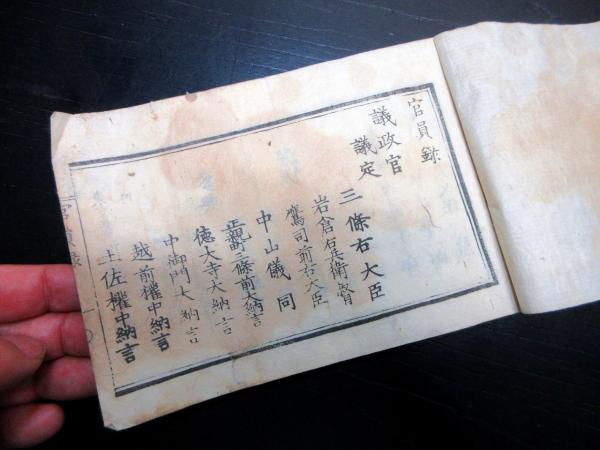 官員録
議政官
議定
三條右大臣
岩倉右兵衛督
鷹司前右大臣
中山儀同
正親町三條前大納言
徳大寺大納言
中御門大納言
越前權中納言
土佐權中納言
官員録